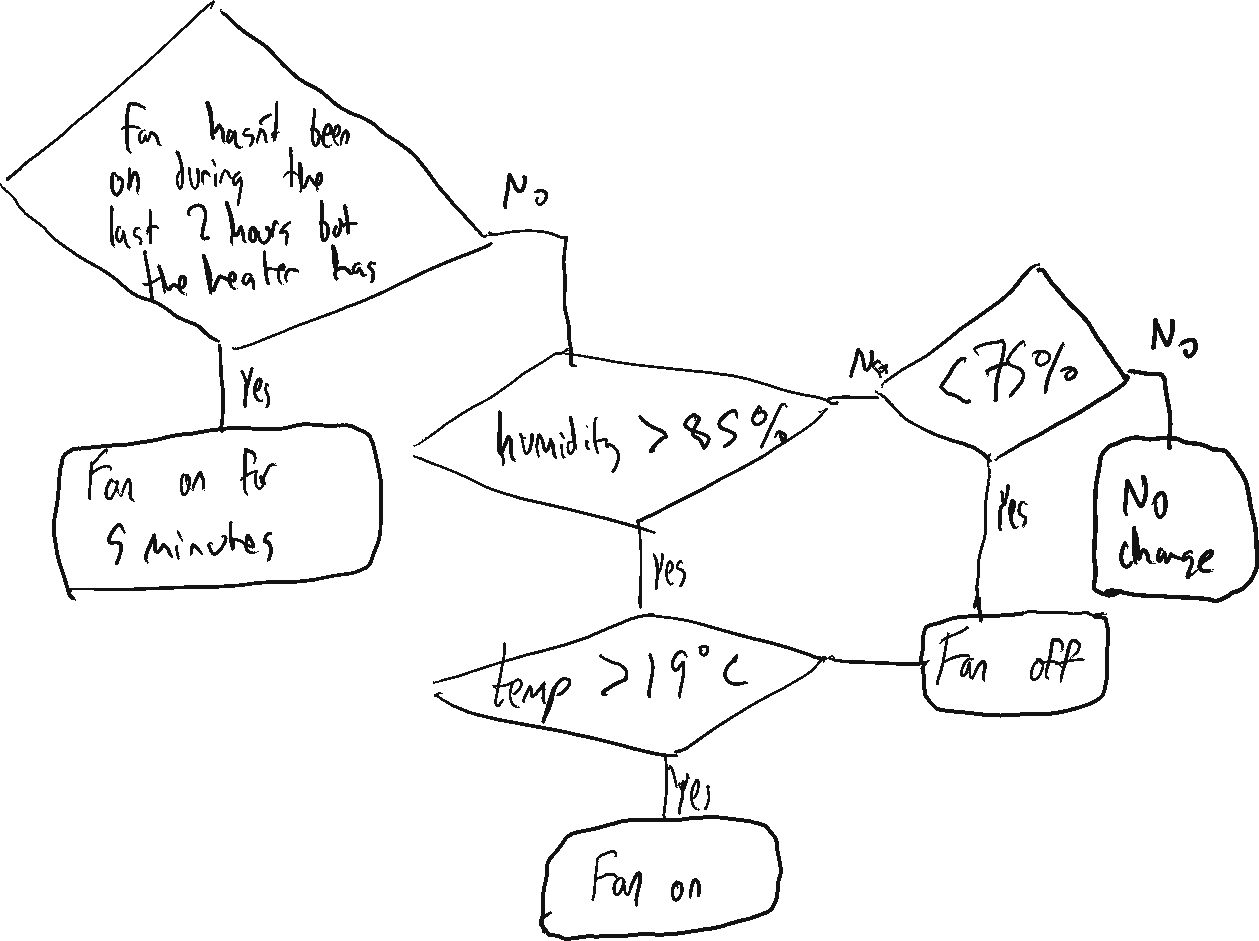 Fan hasn't been
on during the
last 2 hours but
the heater has
No
Yes
Fan on for
5 minutes
humidity > 85%
No
< 75%
No
Yes
Yes
No
change
temp > 19°C
Fan off
Yes
Fan on